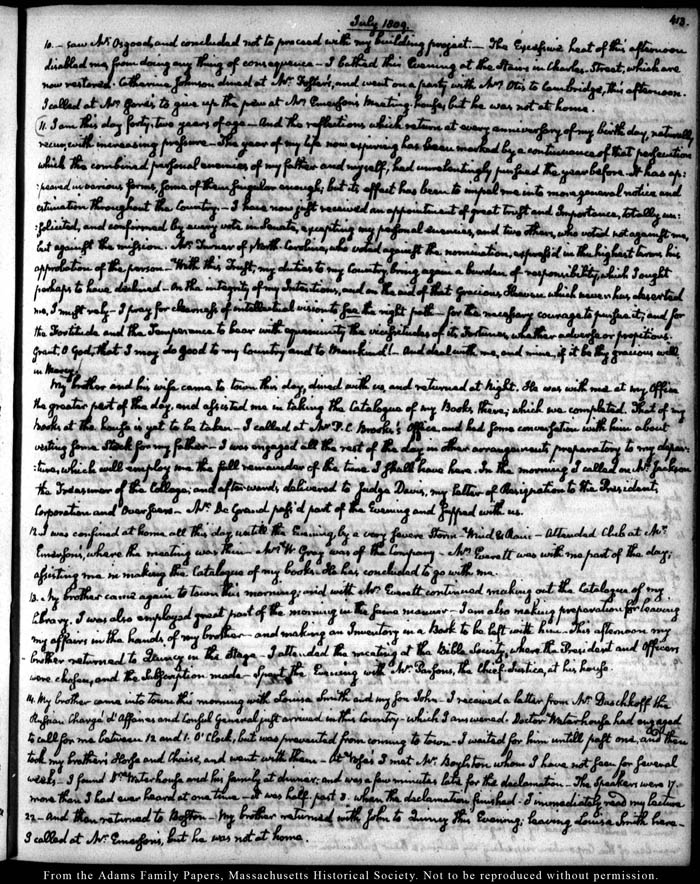 July 1809.
413.
10. — saw Mr. Osgood, and concluded not to proceed with my building project. — The Excessive heat of this afternoon
disabled me from doing any thing of consequence — I bathed this Evening at the Stairs in Charles-Street, which are
now restored. Catharine Johnson dined at Mr. Foster's, and went on a party with Mrs. Otis to Cambridge, this afternoon.
I called at Mr. Gore's to give up the pew at Mr. Emerson's Meeting-house, but he was not at home.
11. I am this day forty-two years of age — And the reflections which return at every anniversary of my birth day, naturally
recur, with increasing pressure — The year of my life now expiring has been marked by a continuance of that persecution
which the combined personal enemies of my father and myself, had unrelentingly pursued the year before. It has ap-
:peared in various forms, some of them singular enough; but its effect has been to impel me into more general notice and
estimation throughout the Country — I have now just received an appointment of great trust and Importance, totally un:
:solicited, and confirmed by every vote in Senate, excepting my personal enemies, and two others, who voted not against me,
but against the mission. Mr. Turner of North-Carolina, who voted against the nomination, express'd in the highest terms his
approbation of the person — With this Trust, my duties to my Country bring again a burden of responsibility, which I ought
perhaps to have declined — On the integrity of my Intentions, and on the aid of that Gracious Heaven which never has deserted
me, I must rely — I pray for clearness of intellectual vision to see the right path — for the necessary courage to pursue it; and for
the Fortitude and the Temperance to bear with equanimity the vicissitudes of its Fortunes, whether adverse or propitious.
Grant, O God, that I may do good to my Country and to Mankind! — And deal with me, and mine, if it be thy gracious will,
in Mercy.
My brother and his wife came to town this day, dined with us, and returned at Night. He was with me at my Office
the greater part of the day, and assisted me in taking the Catalogue of my Books there; which we completed. That of my
books at the house is yet to be taken — I called at Mr. P. C. Brooks's Office, and had some conversation with him about
vesting some Stock for my father — I was engaged all the rest of the day in other arrangements preparatory to my depar-
:ture, which will employ me the full remainder of the time I shall have here. In the morning I called on Mr. Jackson
the Treasurer of the College; and afterwards delivered to Judge Davis, my letter of Resignation to the President,
Corporation and Overseers — Mr. De Grand pass'd part of the Evening and supped with us.
12. I was confined at home all this day, untill the Evening, by a very severe Storm — Wind & Rain — Attended Club at Mr.
Emerson's, where the meeting was thin — Mr. W. Gray was of the Company — Mr. Everett was with me part of the day;
assisting me in making the Catalogue of my books. He has concluded to go with me.
13. My brother came again to town this morning; and with Mr. Everett continued making out the Catalogue of my
Library. I was also employed great part of the morning in the same manner — I am also making preparation for leaving
my affairs in the hands of my brother — and making an Inventory in a Book to be left with him — This afternoon my
brother returned to Quincy in the Stage — I attended the meeting at the Bible Society, where the President and Officers
were chosen, and the Subscription made — Spent the Evening with Mr. Parsons, the Chief-Justice, at his house.
14. My brother came into town this morning with Louisa Smith and my son John — I received a letter from Mr. Daschkoff the
Russian Chargé d'Affaires and Consul General just arrived in this Country — which I answered. Doctor Waterhouse had engaged
to call for me between 12 and 1. O'Clock, but was prevented from coming to town — I waited for him untill past one, and then
took my brother's Horse and Chaise, and went with them — At I met Mr. Boylston whom I have not seen for several
weeks — I found Dr. Waterhouse and his family at dinner; and was a few minutes late for the declamation — The Speakers were 17.
more than I had ever heard at one time — It was half past 3. when the declamation finished — I immediately read my lecture
22 — And then returned to Boston — My brother returned with John to Quincy this Evening; leaving Louisa Smith here —
I called at Mr. Emerson's, but he was not at home.
From the Adams Family Papers, Massachusetts Historical Society. Not to be reproduced without permission.